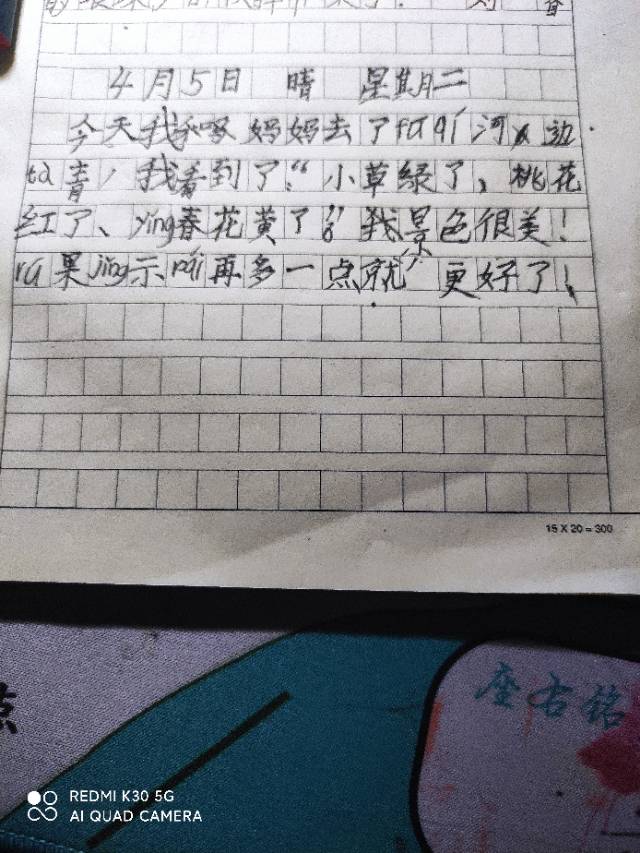 4月5日 晴 星期二
今天我和 妈妈去了 河 边
tà青，我看到了：“小草绿了、桃花
红了、yíng春花黄了”。我景色很美！
rú果jǐng示pái再多一点就 更好了！
15 X 20 = 300
座右铭
REDMI K30 5G
AI QUAD CAMERA